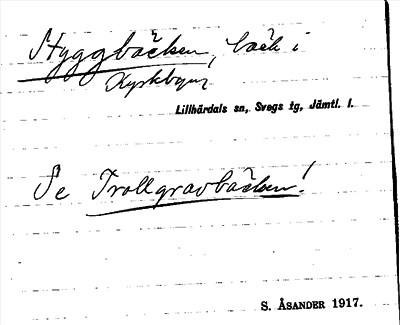 Styggbäcken, bäck i
Kyrkbyn,
Lillhärdals sn, Svegs tg, Jämtl. l.
Se Trollgravbäcken!
S. ÅSANDER 1917.